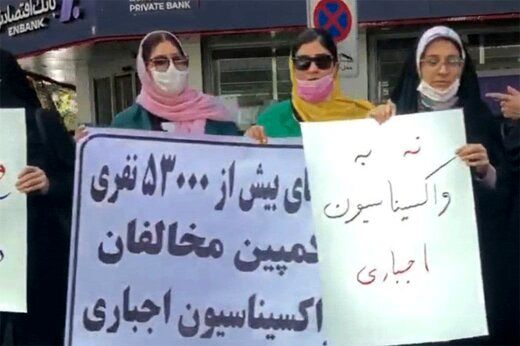 بانک اقتصاد
ENBANK
PRIVATE BANK
بیش از ۵۳۰۰۰ نفری
کمپین مخالفان
واکسیناسیون اجباری
نه به
واکسیناسیون
اجباری